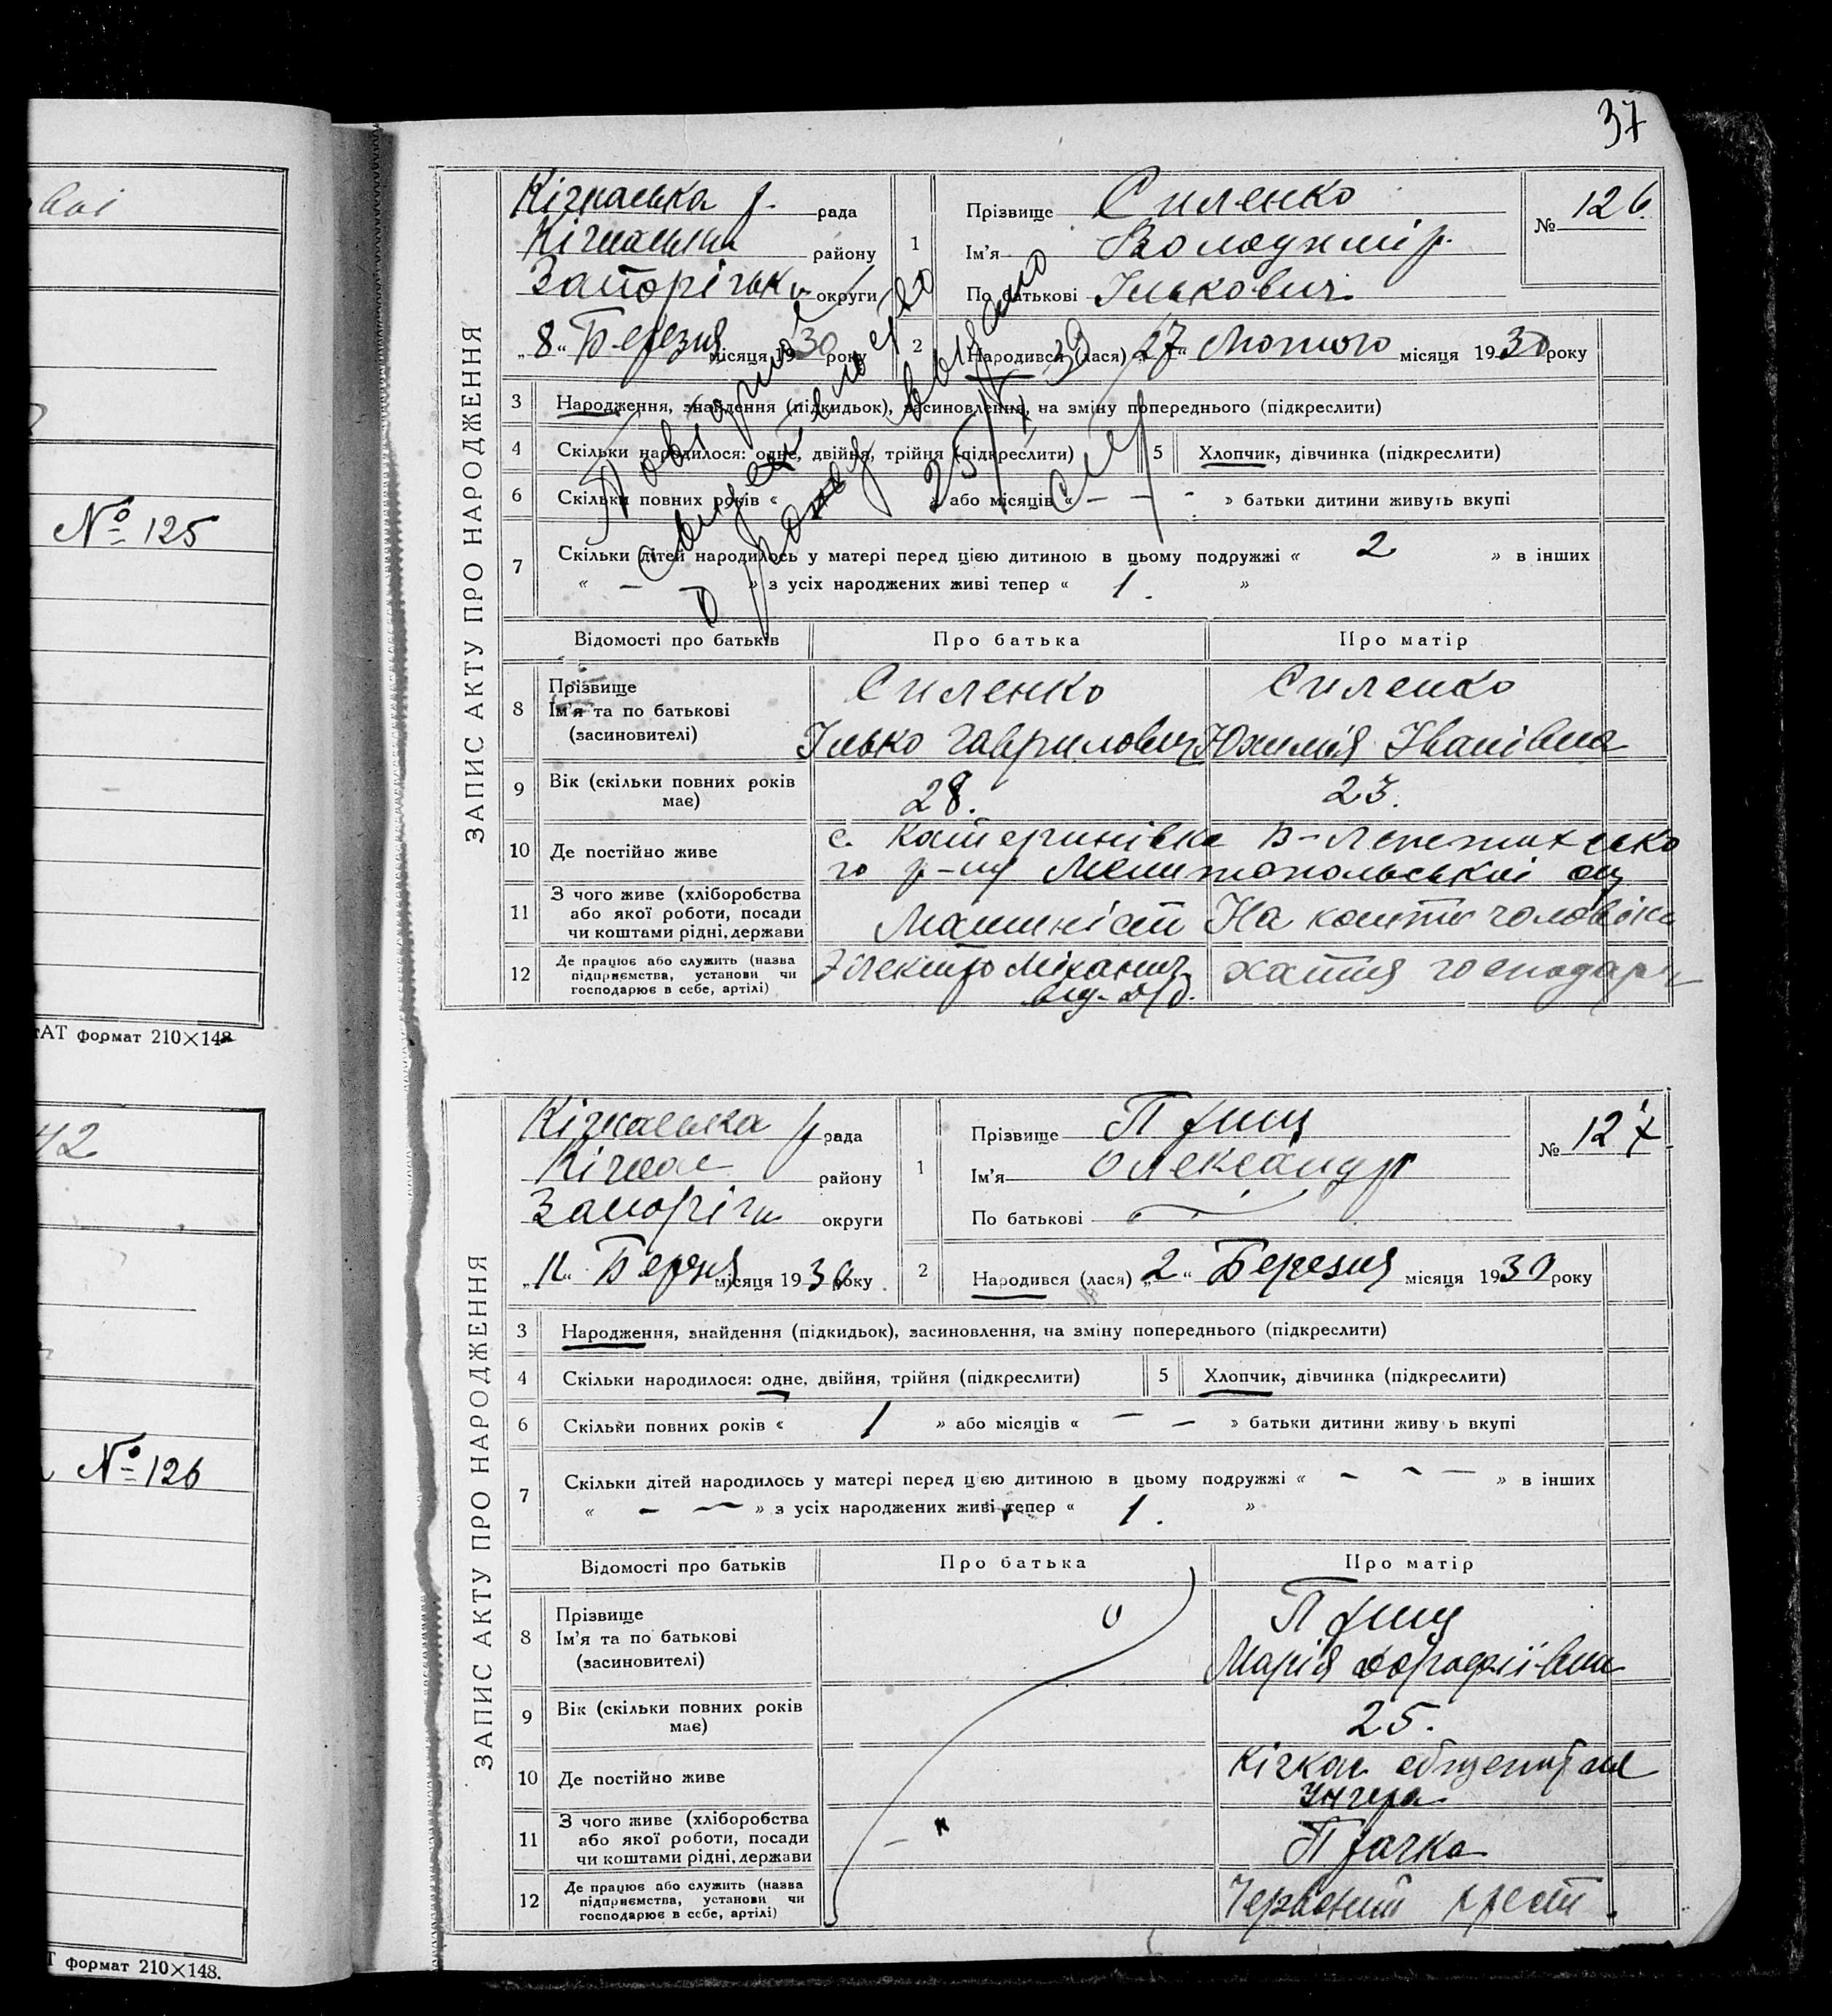 37
№ 125
АТ формат 210×148
№ 126
формат 210×148.
ЗАПИС АКТУ ПРО НАРОДЖЕННЯ
Кічкаська р. рада
району
округи
„8“ Березня місяця 1930 року
№ 126.
1
Прізвище Силенко
Ім'я Володимір
По батькові Ількович
2 Народився (лася) „27“ Лютого місяця 1930 року
3 Народження, знайдення (підкидьок), засиновлення, на зміну попереднього (підкреслити)
4 Скільки народилося: одне, двійня, трійня (підкреслити)
5 Хлопчик, дівчинка (підкреслити)
6 Скільки повних років « » або місяців « – – - » батьки дитини живуть вкупі
7 Скільки дітей народилось у матері перед цією дитиною в цьому подружжі « 2 » в інших
« – » з усіх народжених живі тепер « 1. »
о рожд
выдано
25/
39
Відомості про батьків Про батька Про матір
8 Прізвище Ім'я та по батькові (засновителі)
Силенко Силенко
Ілько Гаврилович Юхимія Іванівна
9 Вік (скільки повних років має) 28. 23.
10 Де постійно живе
с. Катеринівка
го р-ну Мелитопольської ок
11 З чого живе (хліборобства або якої роботи, посади чи коштами рідні, держави
Машиніст На кошти чоловіка
12 Де працює або служить (назва підприємства, установи чи господарює в себе, артілі)
хатня господар
ЗАПИС АКТУ ПРО НАРОДЖЕННЯ
Кічкаська р рада
Кічкас району
округи
Березня місяця 1930 року
№ 127
1
Прізвище
Ім'я Олександр
По батькові
2 Народився (лася) „2“ Березня місяця 1930 року
3 Народження, знайдення (підкидьок), засиновлення, на зміну попереднього (підкреслити)
4 Скільки народилося: одне, двійня, трійня (підкреслити)
5 Хлопчик, дівчинка (підкреслити)
6 Скільки повних років « 1 » або місяців « – – » батьки дитини живуть вкупі
7 Скільки дітей народилось у матері перед цією дитиною в цьому подружжі « – – – » в інших
« – – » з усіх народжених живі тепер « 1. »
Відомості про батьків Про батька Про матір
8 Прізвище Ім'я та по батькові (засиновителі)
Марія
9 Вік (скільки повних років має) 25.
10 Де постійно живе
Кічкас
Унгера
11 З чого живе (хліборобства або якої роботи, посади чи коштами рідні, держави
Прачка
12 Де працює або служить (назва підприємства, установи чи господарює в себе, артілі)
Червоний хрест.